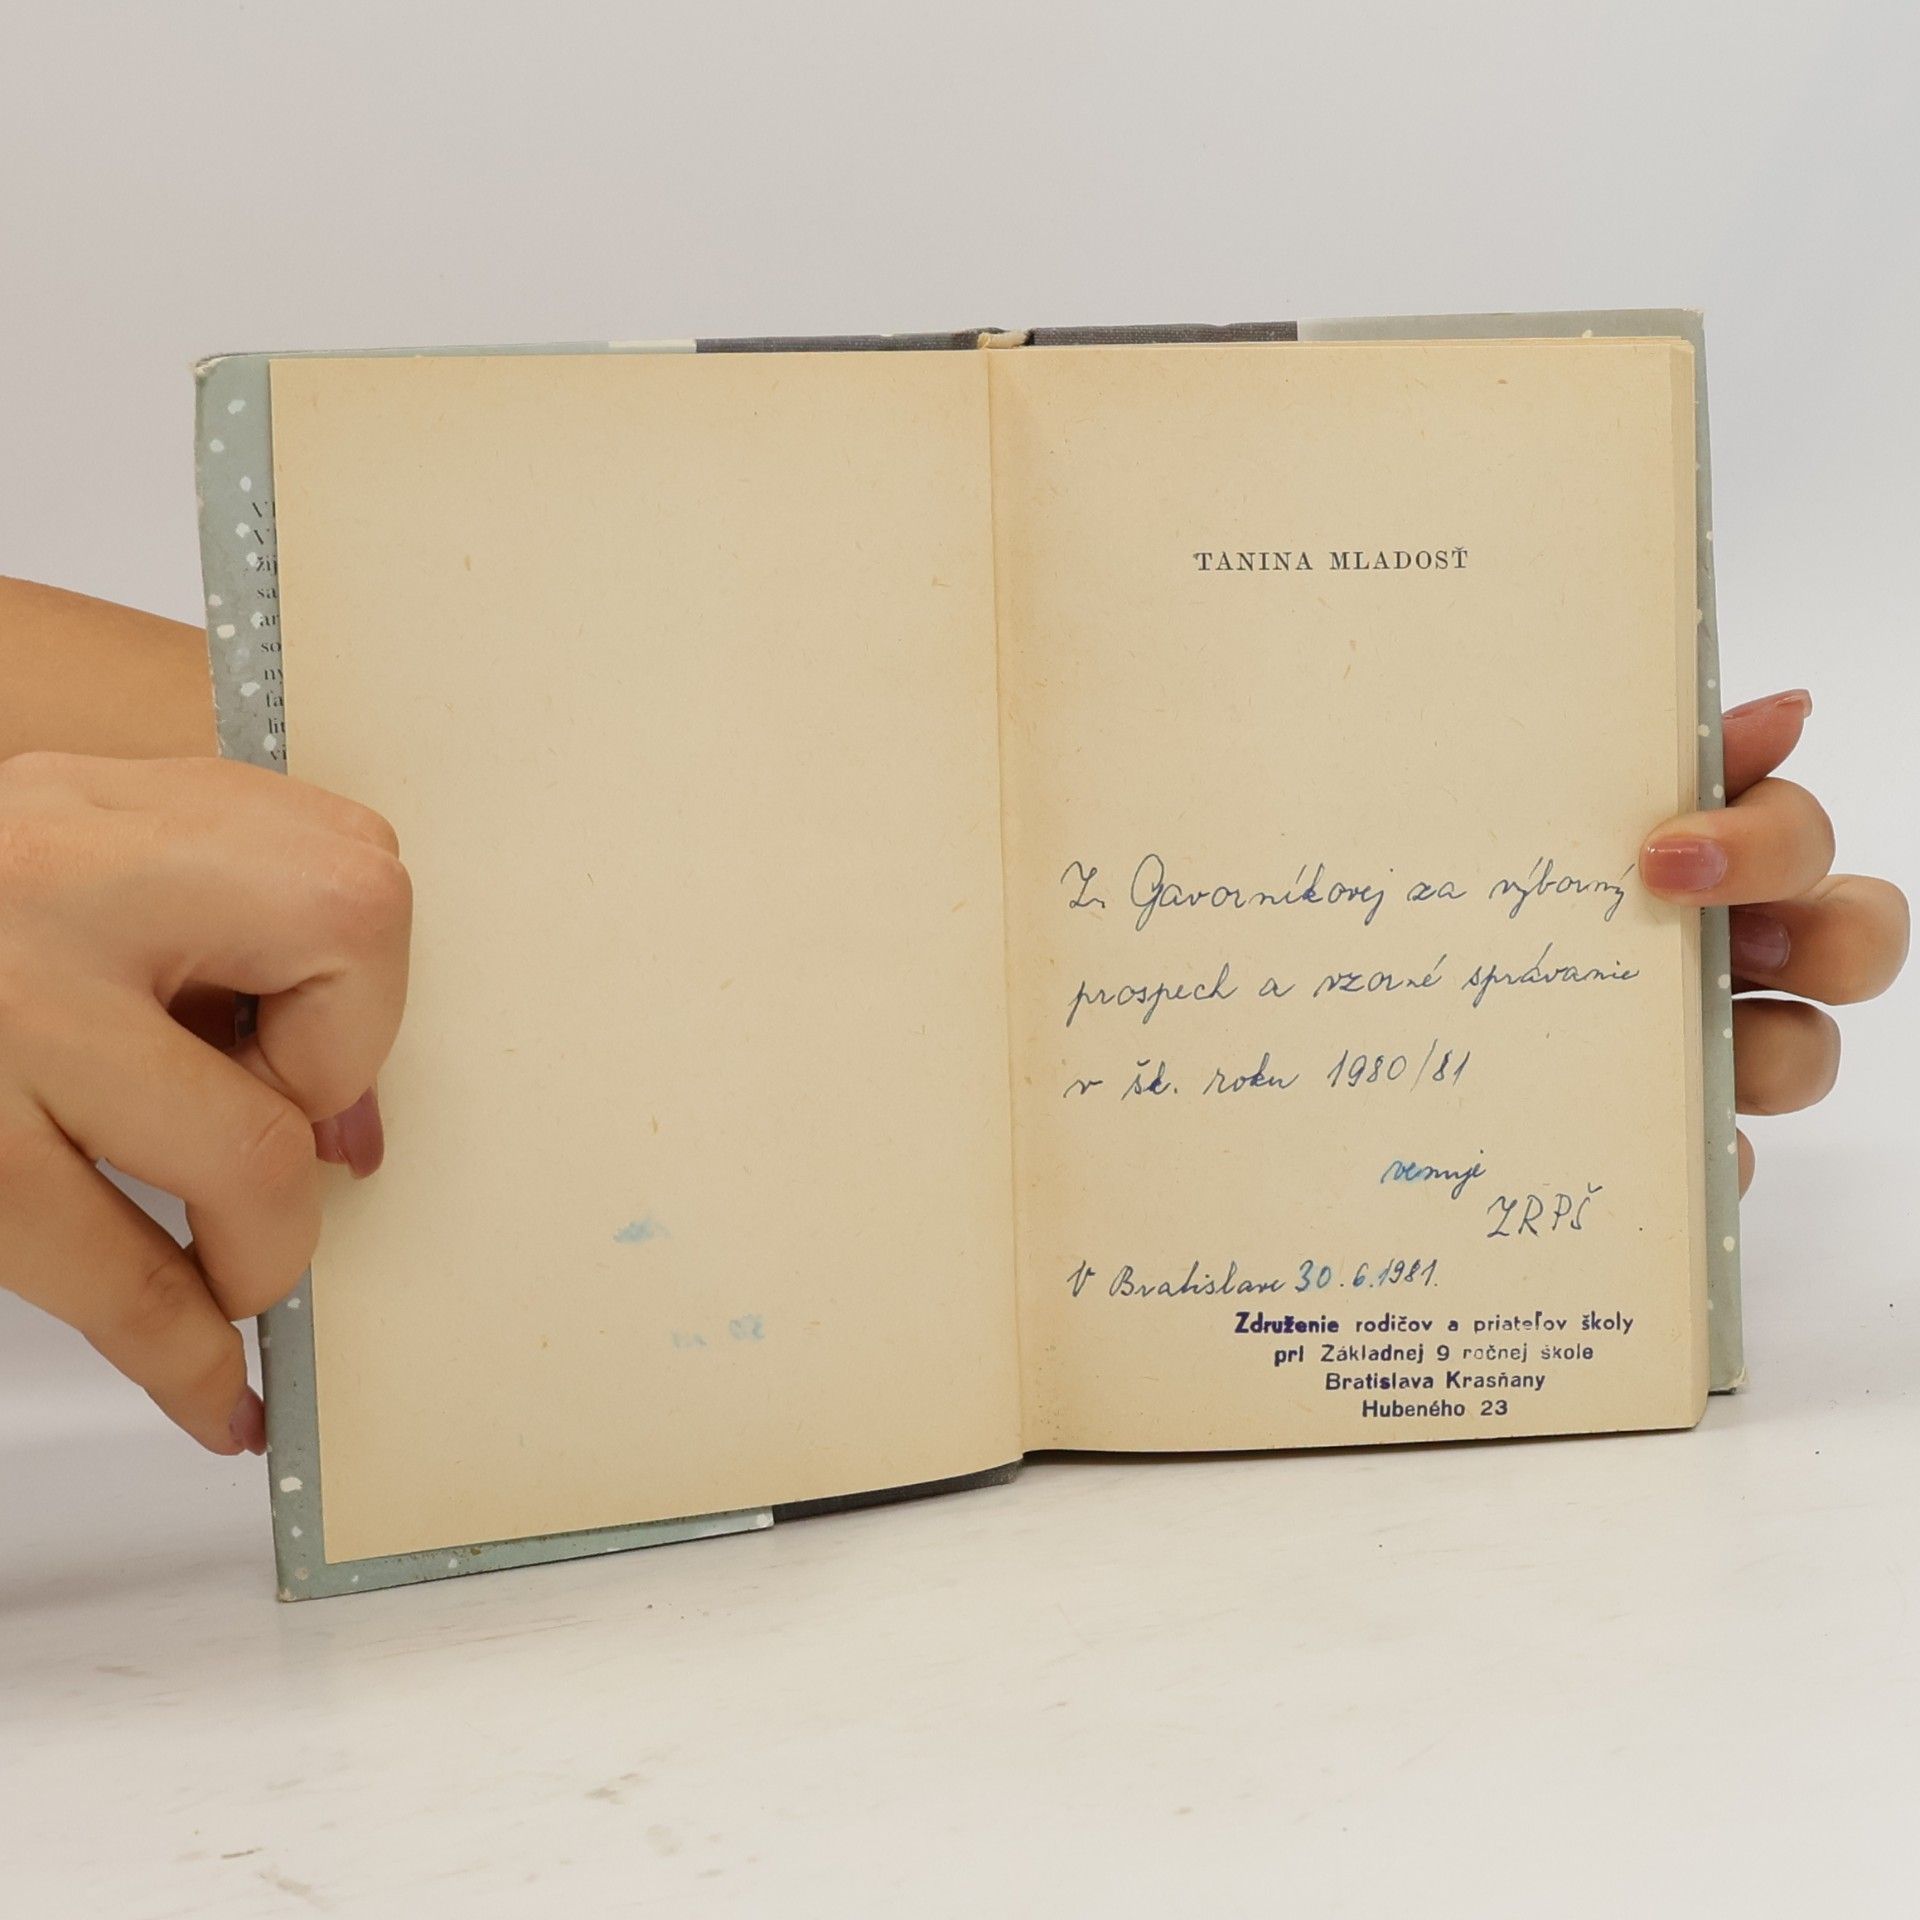 žij
sa
ar
so
ny
fa
lit
vi
TANINA MLADOSŤ
Z. Gavorníkovej za výborný
prospech a vzorné správanie
v šk. roku 1980/81
venuje
ZRPŠ
V Bratislave 30.6.1981.
Združenie rodičov a priateľov školy
pri Základnej 9 ročnej škole
Bratislava Krasňany
Hubeného 23